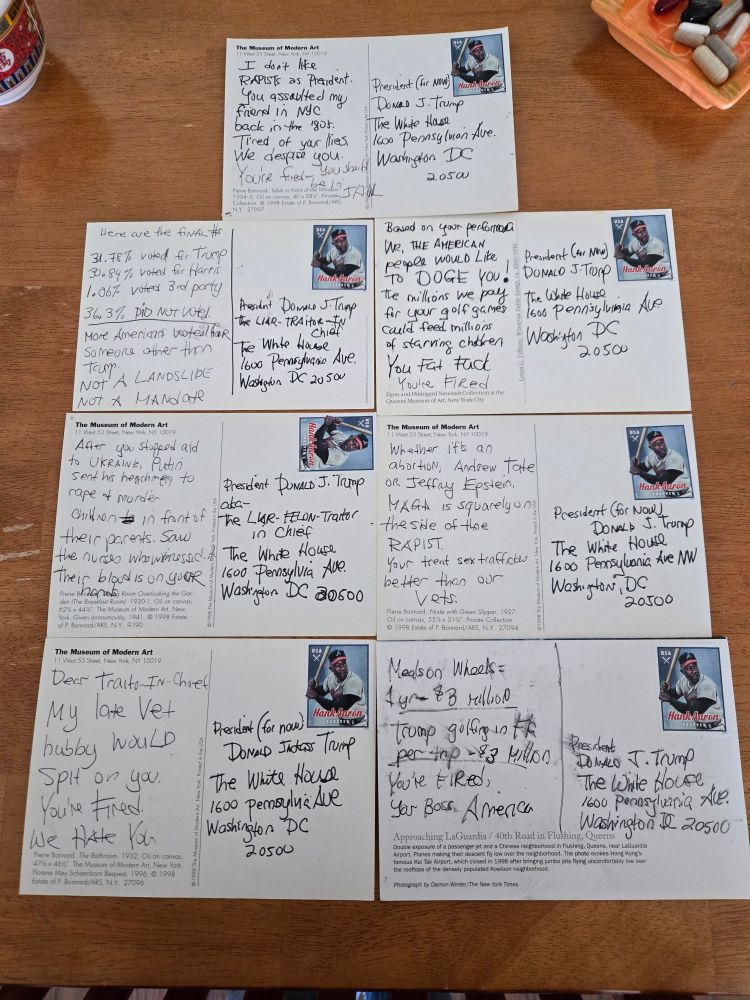 The Museum of Modern Art
11 West 53 Street, New York, NY 10019
I don't like
RAPISTS as President.
You assaulted my
friend in NYC
back in the '80s.
Tired of your lies.
We despise you.
You're fired. You should
be in JAIL
Pierre Bonnard. Table in Front of the Window.
1934-5. Oil on canvas, 40 x 28½". Private
Collection. © 1998 Estate of P. Bonnard/ARS,
N.Y. 27097
USA
Hank Aaron
FOREVER
President (for now)
Donald J. Trump
The White House
1600 Pennsylvain Ave.
Washington DC
20500
Here are the final #s
31.78% voted for Trump
30.84% voted for Harris
1.06% voted 3rd party
36.3% DID NOT VOTE
More Americans voted for
Someone other than
Trump.
NOT A LANDSLIDE
NOT A MANDATE
USA
Hank Aaron
FOREVER
President Donald J. Trump
The LIAR-TRAITOR-IN
Chief
The White House
1600 Pennsylvania Ave.
Washington DC 20500
Based on your performance
We, THE AMERICAN
people WOULD Like
TO DOGE YOU.
The millions we pay
for your golf games
could feed millions
of starving children
You Fat Fuck
You're Fired
Elgin and Hildegard Neustadt Collection at the
Queens Museum of Art, New York City
USA
Hank Aaron
FOREVER
President (for now)
DONALD J. Trump
The White House
1600 Pennsylvania Ave
Washington DC
20500
The Museum of Modern Art
11 West 53 Street, New York, NY 10019
After you stopped aid
to UKRAINE, Putin
sent his henchmen to
rape & murder
children in front of
their parents. Saw
the nurses who witnessed it
Their blood is on yOUR
hands
Room Overlooking the Gar-
den (The Breakfast Room). 1930-1. Oil on canvas,
62¾ x 44⅞". The Museum of Modern Art, New
York. Given anonymously, 1941. © 1998 Estate
of P. Bonnard/ARS, N.Y. 9190
USA
Hank Aaron
FOREVER
President Donald J. Trump
aka-
The LIAR-FELON-Traitor
in Chief
The White House
1600 Pennsylvia Ave.
Washington DC 20500
The Museum of Modern Art
11 West 53 Street, New York, NY 10019
Whether it's an
abortion, Andrew Tate
or Jeffrey Epstein,
MAGA is squarely on
the side of the
RAPIST.
You treat sex traffickers
better than our
Vets.
Pierre Bonnard. Nude with Green Slipper. 1927.
Oil on canvas, 55⅛ x 31⅞". Private Collection
© 1998 Estate of P. Bonnard/ARS, N.Y. 27094
USA
Hank Aaron
FOREVER
President (for now)
DONALD J. Trump
The White House
1600 Pennsylvania Ave NW
Washington, DC
20500
The Museum of Modern Art
11 West 53 Street, New York, NY 10019
Dear Traitor-In-Chief
My late Vet
hubby WOULD
Spit on you.
You're Fired.
We Hate You
Pierre Bonnard. The Bathroom. 1932. Oil on canvas,
47⅝ x 46½". The Museum of Modern Art, New York.
Florene May Schoenborn Bequest, 1996. © 1998
Estate of P. Bonnard/ARS, N.Y. 27096
USA
Hank Aaron
FOREVER
President (for now)
Donald Jackass Trump
The White House
1600 Pennsylvia Ave
Washington DC
20500
Meals on Wheels =
1 yr - $3 Million
Trump golfing in
per trip - $3 Million
You're FIRED,
Your Boss, America
Approaching LaGuardia / 40th Road in Flushing, Queens
Double exposure of a passenger-jet and a Chinese neighborhood in Flushing, Queens, near LaGuardia
Airport. Planes making their descent fly low over the neighborhood. The photo evokes Hong Kong's
famous Kai Tak Airport, which closed in 1998 after bringing jumbo jets flying uncomfortably low over
the rooftops of the densely populated Kowloon neighborhood.
Photograph by Damon Winter/The New York Times
USA
Hank Aaron
FOREVER
President
DONALD J. Trump
The White House
1600 Pennsylvania Ave.
Washington DC 20500